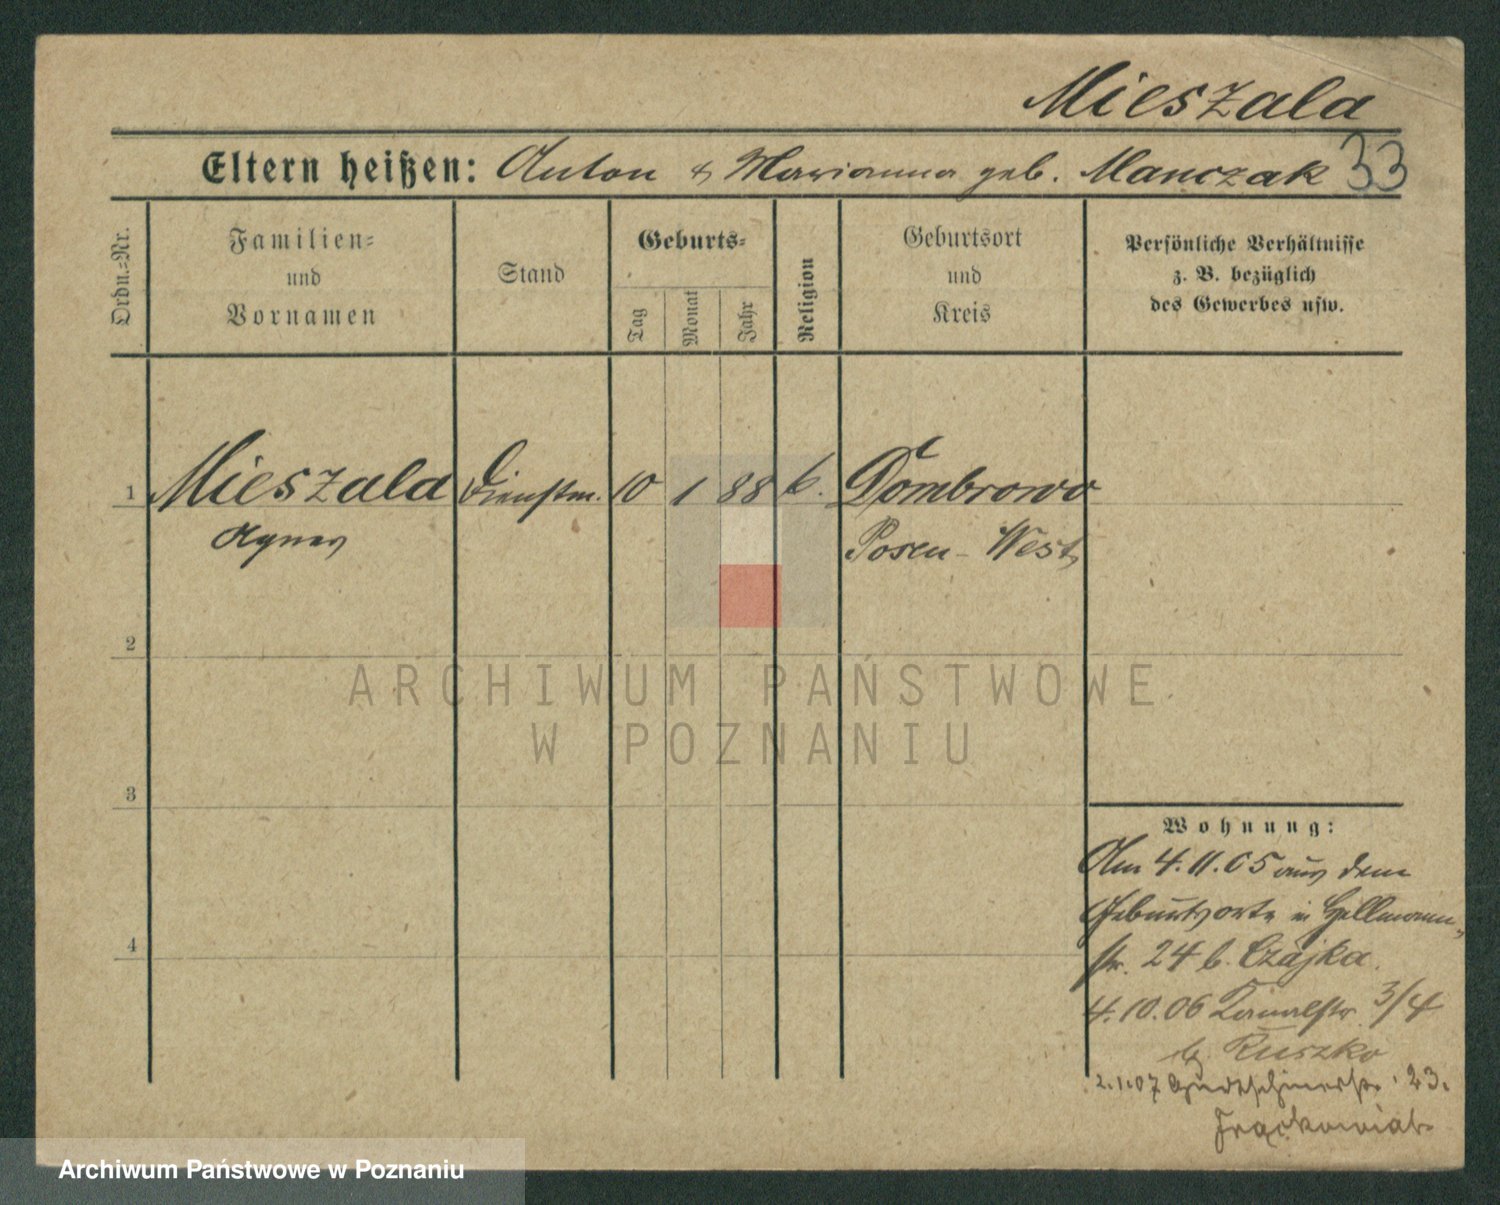 Mieszala
Eltern heißen: Anton & Marianna geb. Manczak 33
Ordn.=Nr.
Familien=
und
Vornamen
Stand
Geburts=
Tag
Monat
Jahr
Religion
Geburtsort
und
Kreis
Persönliche Verhältnisse
z. B. bezüglich
des Gewerbes usw.
1 Mieszala Dienstm. 10 1 88 k. Dombrowo
Agnes Posen-West
2
3
4
Wohnung:
Am 4.11.05 aus dem
Geburtsorte in Hellmann-
str. 24 b. Czajka.
4.10.06 Kanalstr. 3/4
b. Ruszko
2.1.07 23.
ARCHIWUM PAŃSTWOWE
W POZNANIU
Archiwum Państwowe w Poznaniu